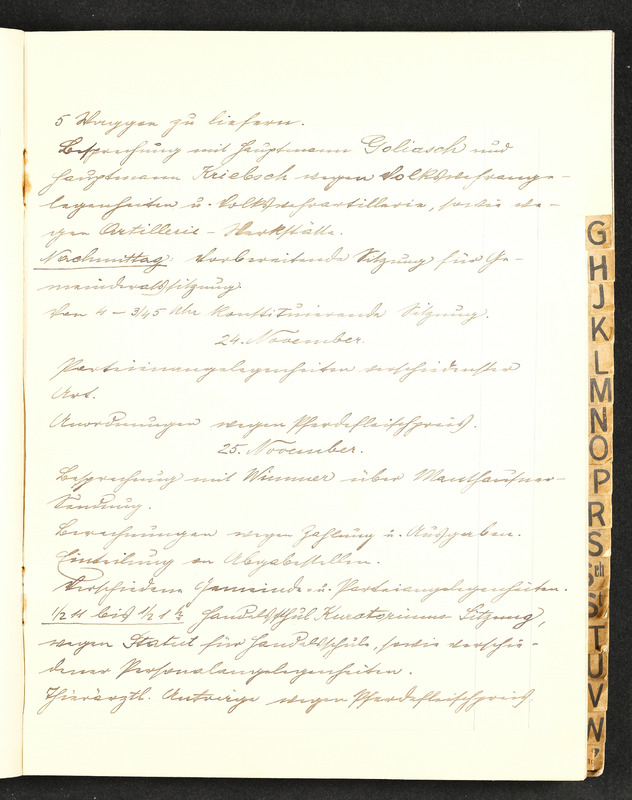 5 Waggon zu liefern.
Besprechung mit Hauptmann Goliasch und
Hauptmann Kriebsch wegen Volkswehrange-
legenheiten u. Volkswehrartillerie, sowie we-
gen Artillerie-Werkstätte.
Nachmittag Vorbereitende Sitzung für Ge-
meinderatssitzung.
Von 4 – 3/4 5 Uhr konstituierende Sitzung.
24. November.
Parteienangelegenheiten verschiedenster
Art.
Anordnungen wegen Pferdefleischpreis.
25. November.
Besprechung mit Wimmer über Mauthausner-
Sendung.
Berechnungen wegen Zahlung u. Ausgaben.
Einteilung an Abgabestellen.
Verschiedene Gemeinde- u. Parteiangelegenheiten.
1/2 11 bis 1/2 1 h Handelsschul Kuratoriums Sitzung,
wegen Statut für Handelsschule, sowie verschie-
dener Personalangelegenheiten.
Thierärztl. Anträge wegen Pferdefleischpreis
G
H
J
K
L
M
N
O
P
R
S
Sch
St
T
U
V
W